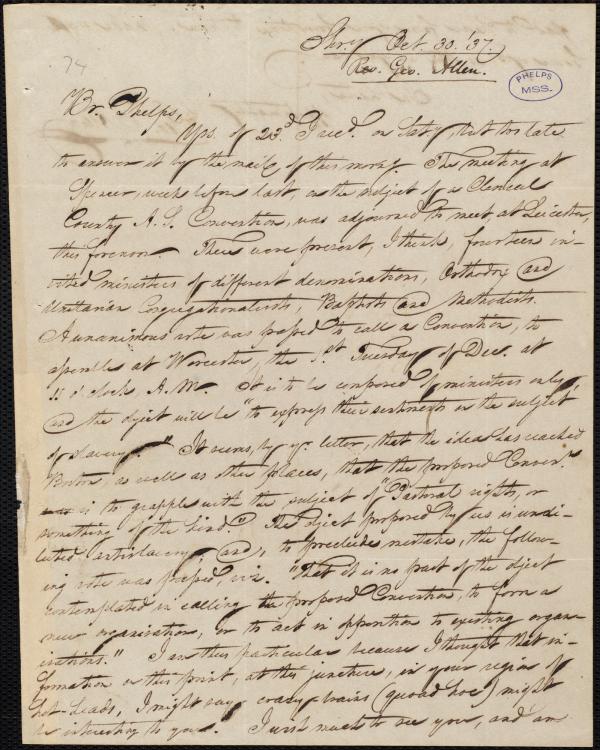 74
Shrry Oct. 30. '37.
Rev. Geo. Allen.
PHELPS
MSS.
Br. Phelps,
Yrs. of 23d. I recd. on Saty, but too late
to answer it by the mail of this morng. The meeting at
Spencer, week before last, on the subject of a Clerical
County A. S. Convention, was adjourned to meet at Leicester,
this forenoon. There were present, I think, fourteen in-
vited ministers of different denominations, Orthodox and
Unitarian Congregationalists, Baptists and Methodists.
A unanimous vote was passed to call a Convention, to
assemble at Worcester, the 1st Tuesday of Dec. at
11 o'clock A.M. It is to be composed of ministers only,
and the object will be "to express their sentiments on the subject
of slavery." It seems, by yr. letter, that the idea has reached
Boston, as well as other places, that the proposed Conven.
is to grapple with the subject of "Pastoral rights, or
something of the kind." The object proposed by us is undi-
luted antislavery; and, to preclude mistake, the follow-
ing vote was passed, viz. "That it is no part of the object
contemplated in calling the proposed Convention, to form a
new organisation, or to act in opposition to existing organ-
isations." I am thus particular because I thought that in-
formation on this point, at this juncture, in your region of
hot-heads, I might say crazy-brains (quoad hoc) might
be interesting to you. I wish much to see you, and am